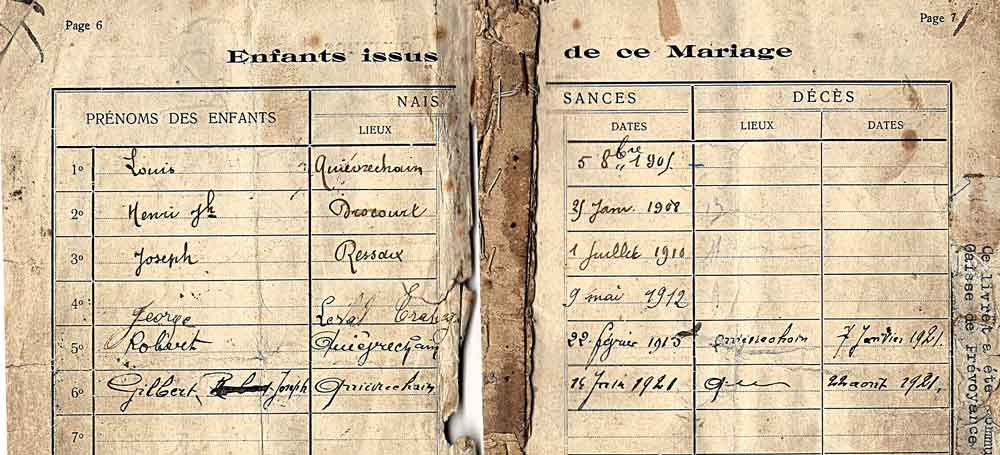 Page 6
Page 7
Enfants issus de ce Mariage
PRÉNOMS DES ENFANTS
NAISSANCES
DÉCÈS
LIEUX
DATES
LIEUX
DATES
1º Louis Quiévrechain 5 8bre 1905
2º Henri Jh Drocourt 25 Janv. 1908
3º Joseph Ressaix 1 Juillet 1910
4º George Leval 9 mai 1912
5º Robert Quiévrechain 22 février 1915 Quievrechain 7 Janvier 1921.
6º Gilbert, Joseph Quievrechain 14 Juin 1921 22 aout 1921.
7º
Ce livret a été
Caisse de Prévoyance